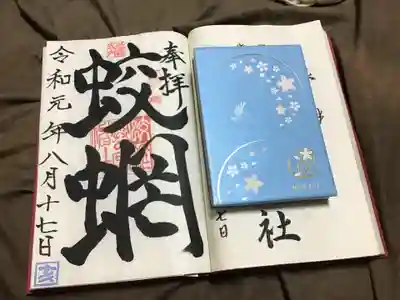 社
七日
奉拝
蛟蝄
令和元年八月十七日